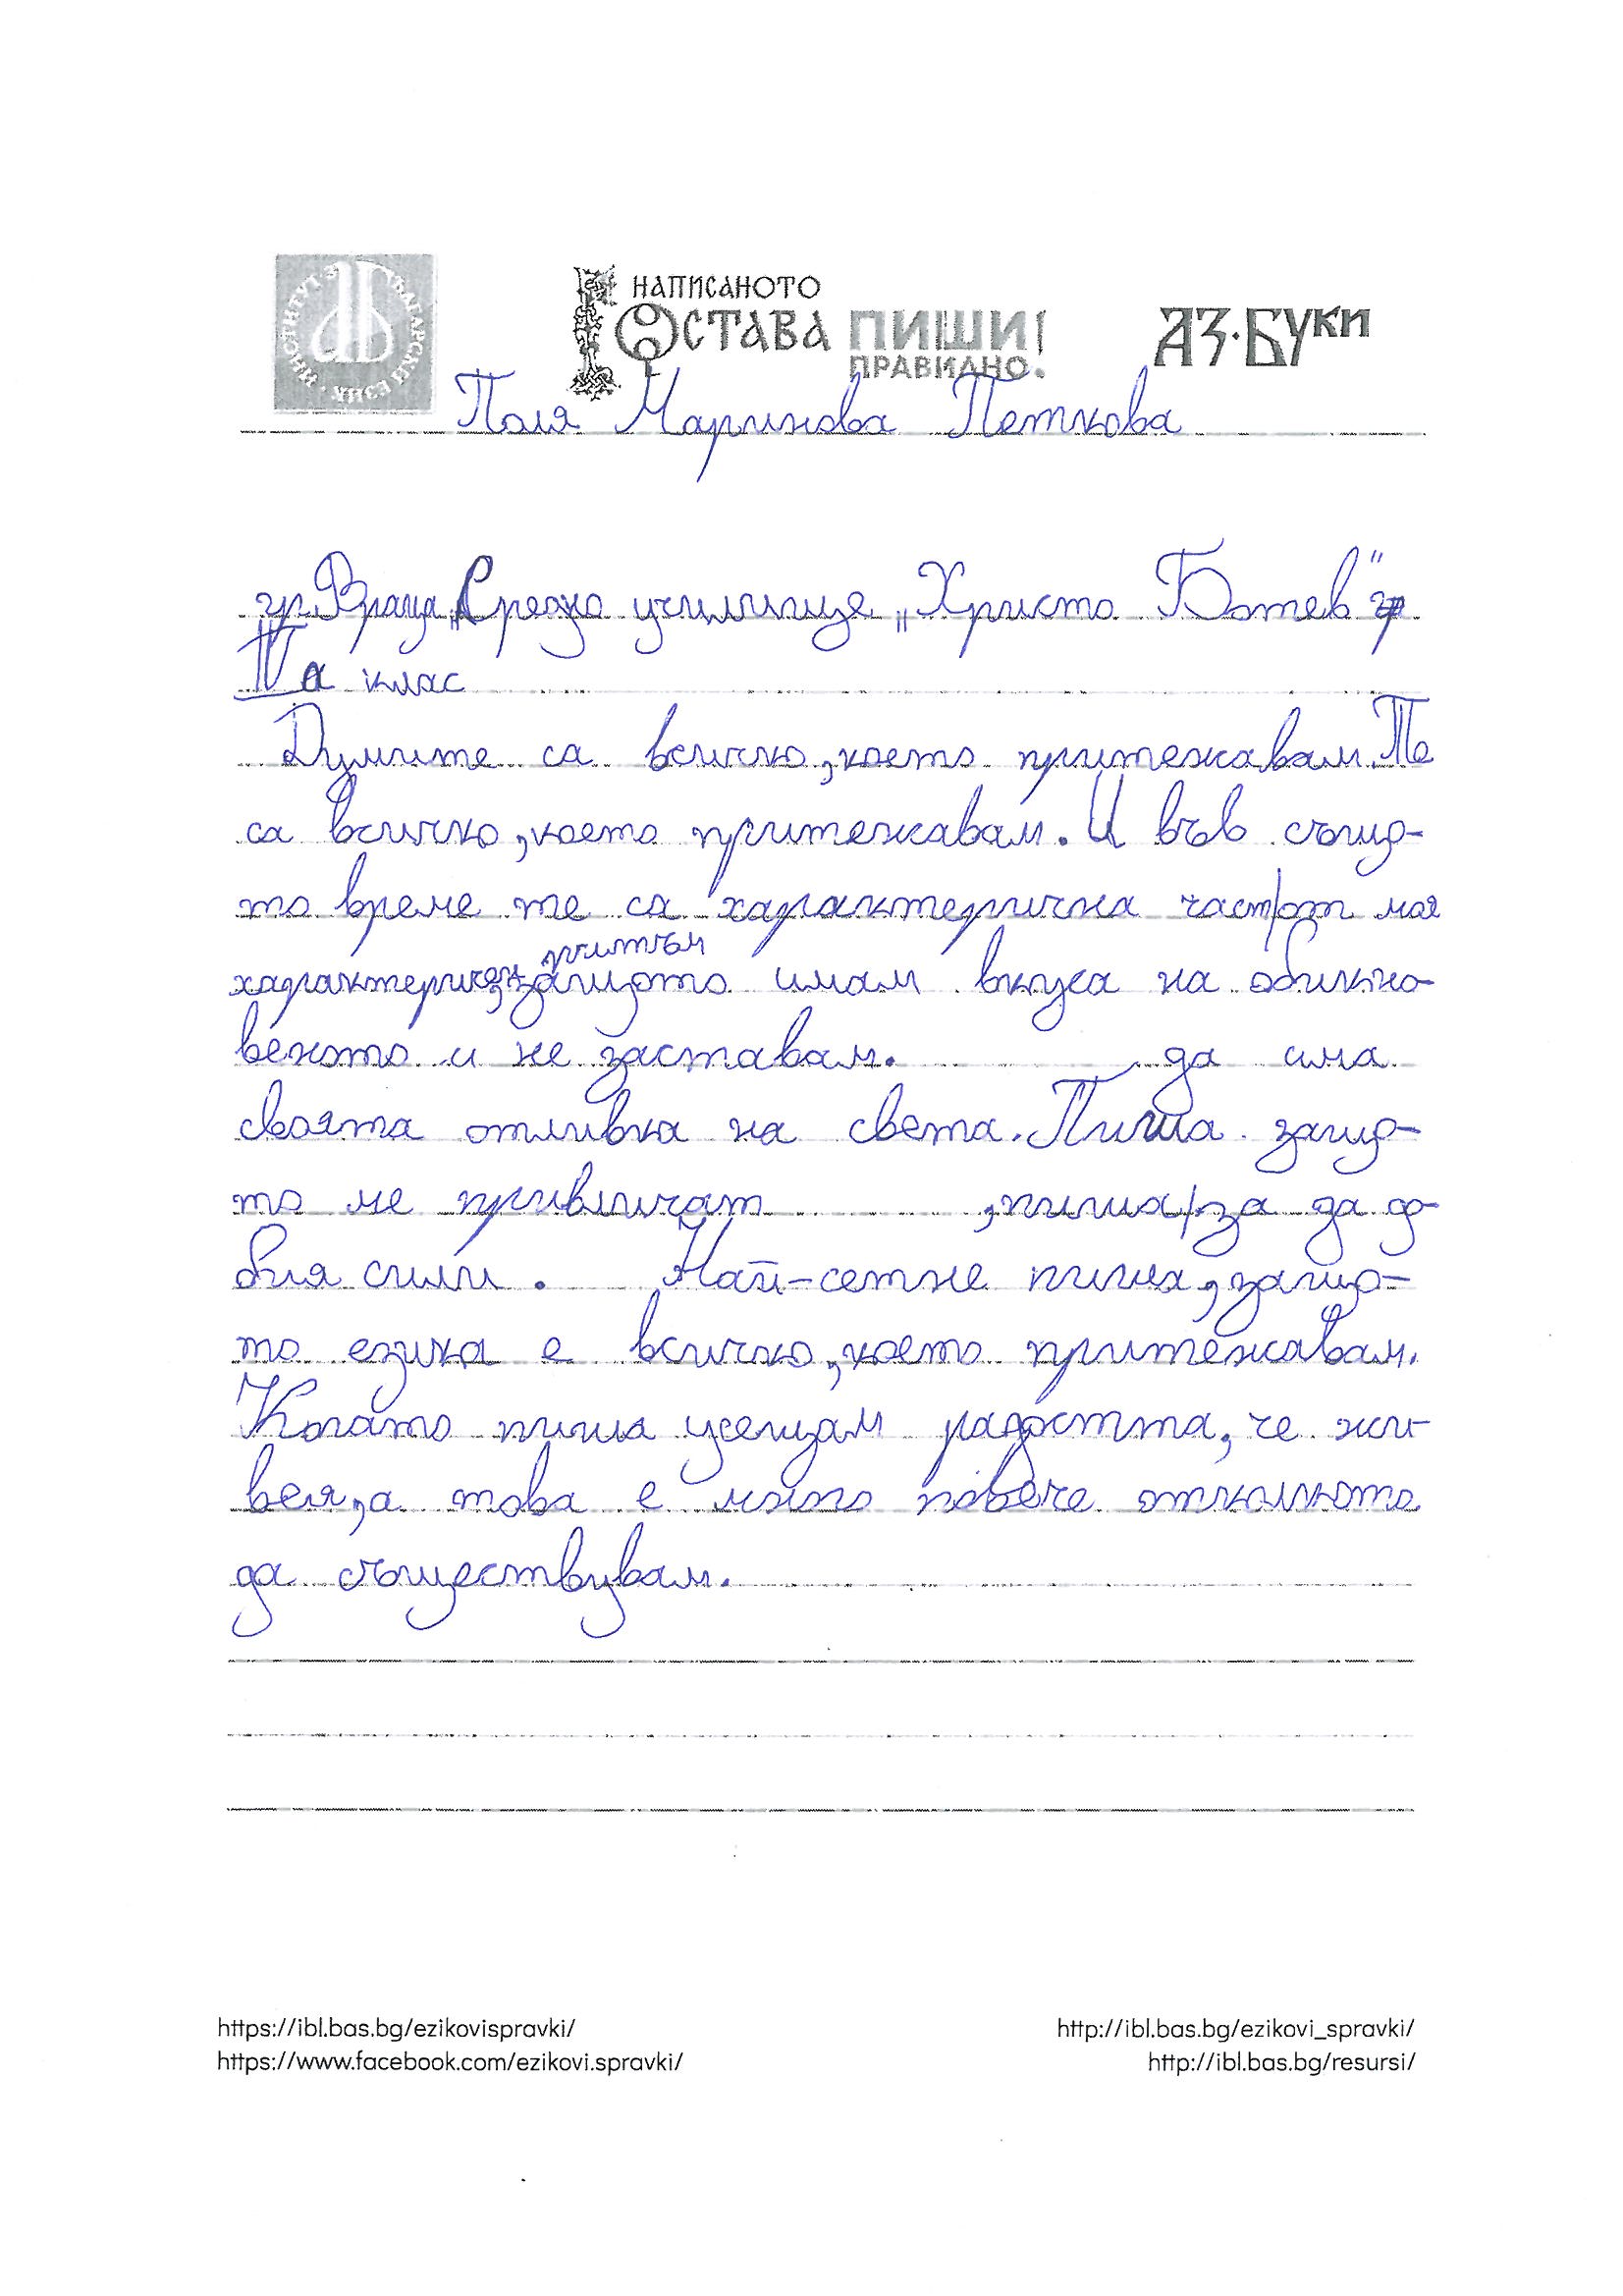 ИНСТИТУТ ЗА БЪЛГАРСКИ ЕЗИК
НАПИСАНОТО
ОСТАВА ПИШИ!
ПРАВИЛНО.
АЗ·БУКИ
Поля Маринова Петкова
гр. Враца, Средно училище „Христо Ботев“
IV а клас
Думите са всичко, което притежавам. Те
са всичко, което притежавам. И във също-
то време те са характерична част от моя
ритъм
характерен, защото имам вкуса на обикно-
веното и не заставам. да има
своята отливка на света. Пиша защо-
то ме привличат , пиша, за да до-
бия сили . Най-сетне пиша, защо-
то езика е всичко, което притежавам.
Когато пиша усещам радостта, че жи-
вея, а това е много повече отколкото
да съществувам.
https://ibl.bas.bg/ezikovispravki/
https://www.facebook.com/ezikovi.spravki/
http://ibl.bas.bg/ezikovi_spravki/
http://ibl.bas.bg/resursi/